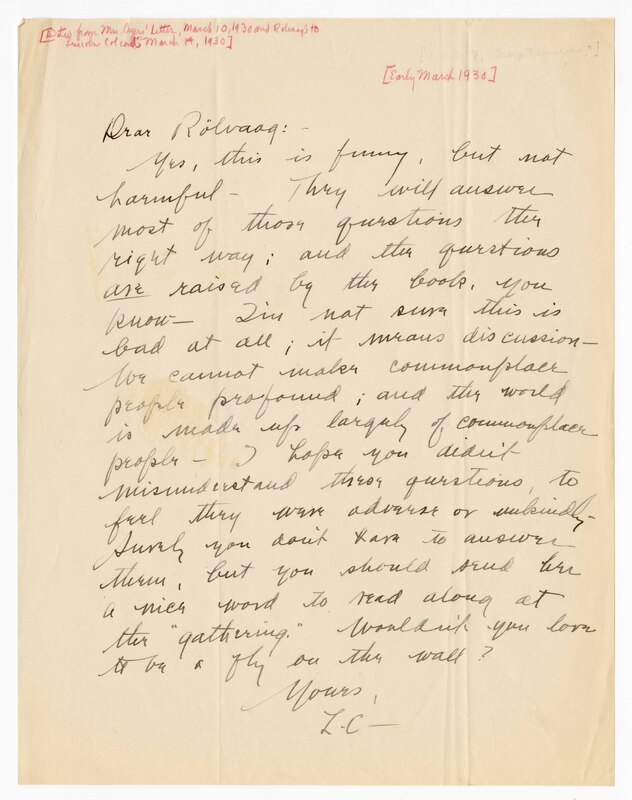 [Dated from Mrs. Ayers' Letter, March 10, 1930 and Rolvaag's to
Lincoln Colcord March 14, 1930]
[Early March 1930]
Dear Rölvaag:-
Yes, this is funny, but not
harmful— They will answer
most of those questions the
right way; and the questions
are raised by the book, you
know— I'm not sure this is
bad at all; it means discussion—
We cannot make commonplace
people profound; and the world
is made up largely of commonplace
people— I hope you didn't
misunderstand these questions, to
feel they were adverse or unkindly—
Surely you don't have to answer
them, but you should send her
a nice word to read along at
the "gathering." Wouldn't you love
to be a fly on the wall?
Yours,
L.C—